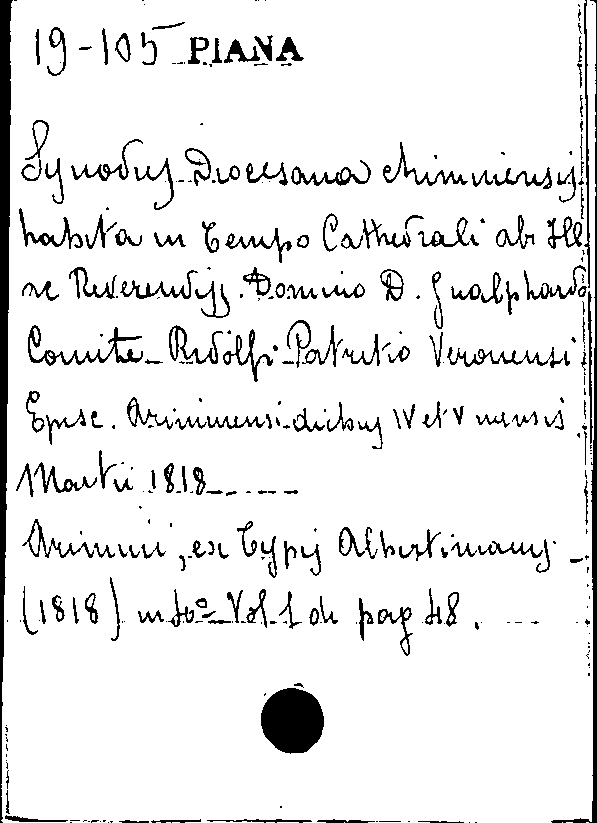 19-105 PIANA
Synodus Diocesana Ariminensis
habita in Templo Cathedrali ab Ill.
ac Reverendiss. Domino D. Gualphardo
Comite Ridolfi Patritio Veronensi
Episc. Ariminensi diebus IV et V mensis
Martii 1818
Arimini, ex Typis Albertinianis
(1818) in 4º Vol. 1 di pag 48.